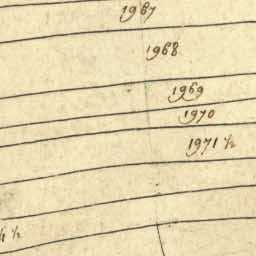 1967
1968
1969
1970
1971 ½
½